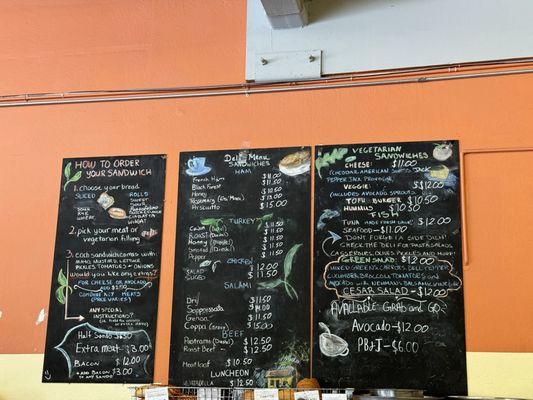 HOW TO ORDER
YOUR SANDWICH
1. choose your bread
SLICED
ROLLS
SOUR
RYE
WHEAT
SWEET
DUTCH CRUNCH
2. pick your meat or
vegetarian filling
3. Each sandwich comes with
MAYO, MUSTARD, LETTUCE
PICKLES TOMATOES + ONIONS
Would you like any extras?
FOR CHEESE OR AVOCADO
(PRICE VARIES)
ANY SPECIAL
INSTRUCTIONS?
Half Sando $8.50
Extra meat $3.00
BACON $12.00
BACON + ANY $3.00
TO ANY SANDO
Deli Menu
SANDWICHES
HAM
French Ham $11.00
Black Forest $11.50
Honey $11.50
Rosemary $13.00
Prosciutto $15.00
TURKEY
Cajun $11.50
Roast $11.50
Honey $11.50
Smoked (Diestel) $11.50
Pepper $11.50
CHICKEN
SALAD $12.00
SMOKED $11.50
SALAMI
Dry $11.50
Soppressata $14.00
Genoa $11.50
Coppa $15.00
BEEF
Pastrami $12.50
Roast Beef $12.50
Meatloaf $10.50
LUNCHEON
MORTADELLA $12.50
VEGETARIAN
SANDWICHES
CHEESE: $11.00
(CHEDDAR, AMERICAN, SWISS
PEPPER JACK, PROVOLONE)
VEGGIE: $12.00
TOFU BURGER $10.50
HUMMUS $10.50
FISH
TUNA $12.00
SEAFOOD - $11.00
DON'T FORGET A SIDE DISH!
CHECK THE DELI FOR PASTA SALADS
CASSEROLES, OLIVES, PICKLES AND MORE!
GREEN SALAD $12.00
MIXED GREENS, CARROTS, BELL PEPPER
CUCUMBER, BROCCOLI, TOMATOES AND
WITH NEWMANS BALSAMIC VINAIGRETTE
CESAR SALAD - $12.00
AVAILABLE GRAB and GO
Avocado - $12.00
PB+J - $6.00